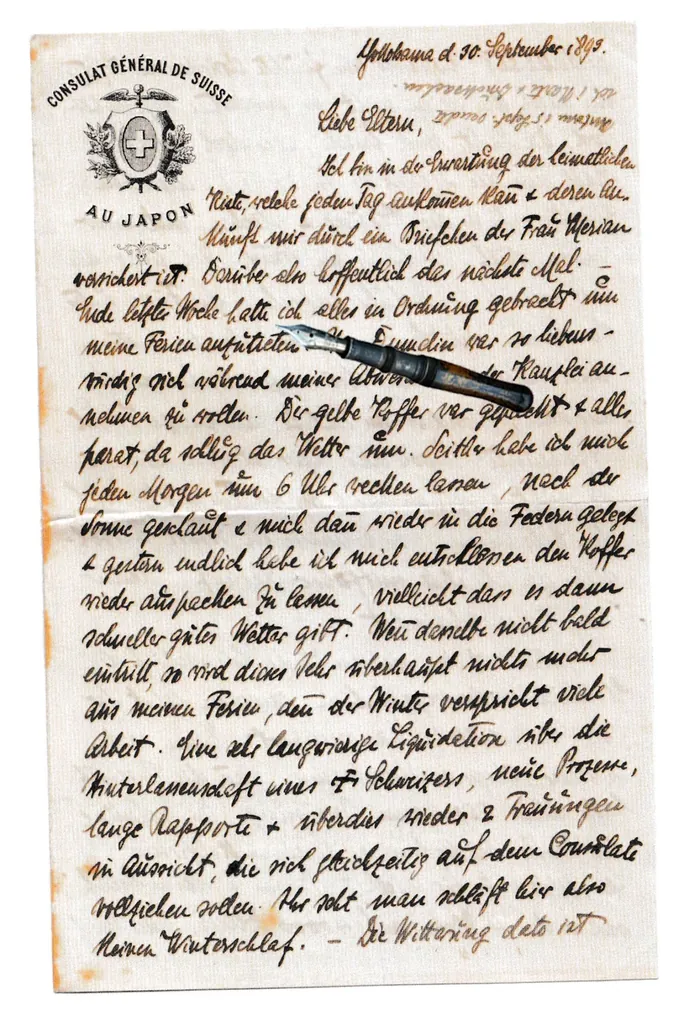 CONSULAT GÉNÉRAL DE SUISSE
AU JAPON
Yokohama d. 30. September 1893.
Liebe Eltern,
Ich bin in der Erwartung der heimatlichen
Kiste, welche jeden Tag ankom̄en kan̄ & deren An-
kunft mir durch ein Briefchen der Frau Merian
versichert ist. Darüber also hoffentlich das nächste Mal. —
Ende letzter Woche hatte ich alles in Ordnung gebracht um
meine Ferien anzutreten
war so liebens-
würdig sich während meiner der Kanzlei an-
nehmen zu wollen. Der gelbe Koffer war gepackt & alles
parat, da schlug das Wetter um. Seither habe ich mich
jeden Morgen um 6 Uhr wecken lassen, nach der
Sonne geschaut & mich dan̄ wieder in die Federn gelegt
& gestern endlich habe ich mich entschlossen den Koffer
wieder auspacken zu lassen, vielleicht dass es dann
schneller gutes Wetter gibt. Wen̄ dasselbe nicht bald
eintritt, so wird dieses Jahr überhaupt nichts mehr
aus meinen Ferien, den̄ der Winter verspricht viele
Arbeit. Eine sehr langwierige Liquidation über die
Hinterlassenschaft eines ✝ Schweizers, neue Prozesse,
lange Rapporte & überdies wieder 2 Trauungen
in Aussicht, die sich gleichzeitig auf dem Consulate
vollziehen sollen. Ihr seht man schläft hier also
keinen Winterschlaf. — Die Witterung dato ist